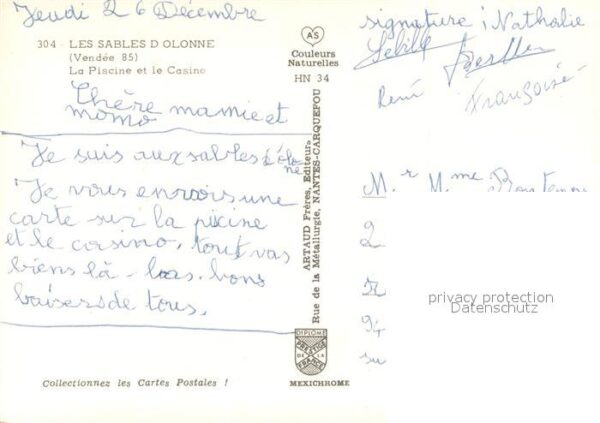 Jeudi 26 Décembre
304 - LES SABLES D OLONNE
(Vendée 85)
La Piscine et le Casino
Chère mamie et
momo
Je suis aux sables d'olo
ne
Je vous envois une
carte sur la piscine
et le casino, tout vas
biens là-bas. bons
baisers de tous.
Collectionnez les Cartes Postales !
AS
Couleurs
Naturelles
HN 34
ARTAUD Frères, Editeurs
Rue de la Métallurgie, NANTES-CARQUEFOU
DIPLOME
PRESTIGE
DE LA
FRANCE
MEXICHROME
signature : Nathalie
René
Françoise
Mr Mme
2
94
privacy protection
Datenschutz